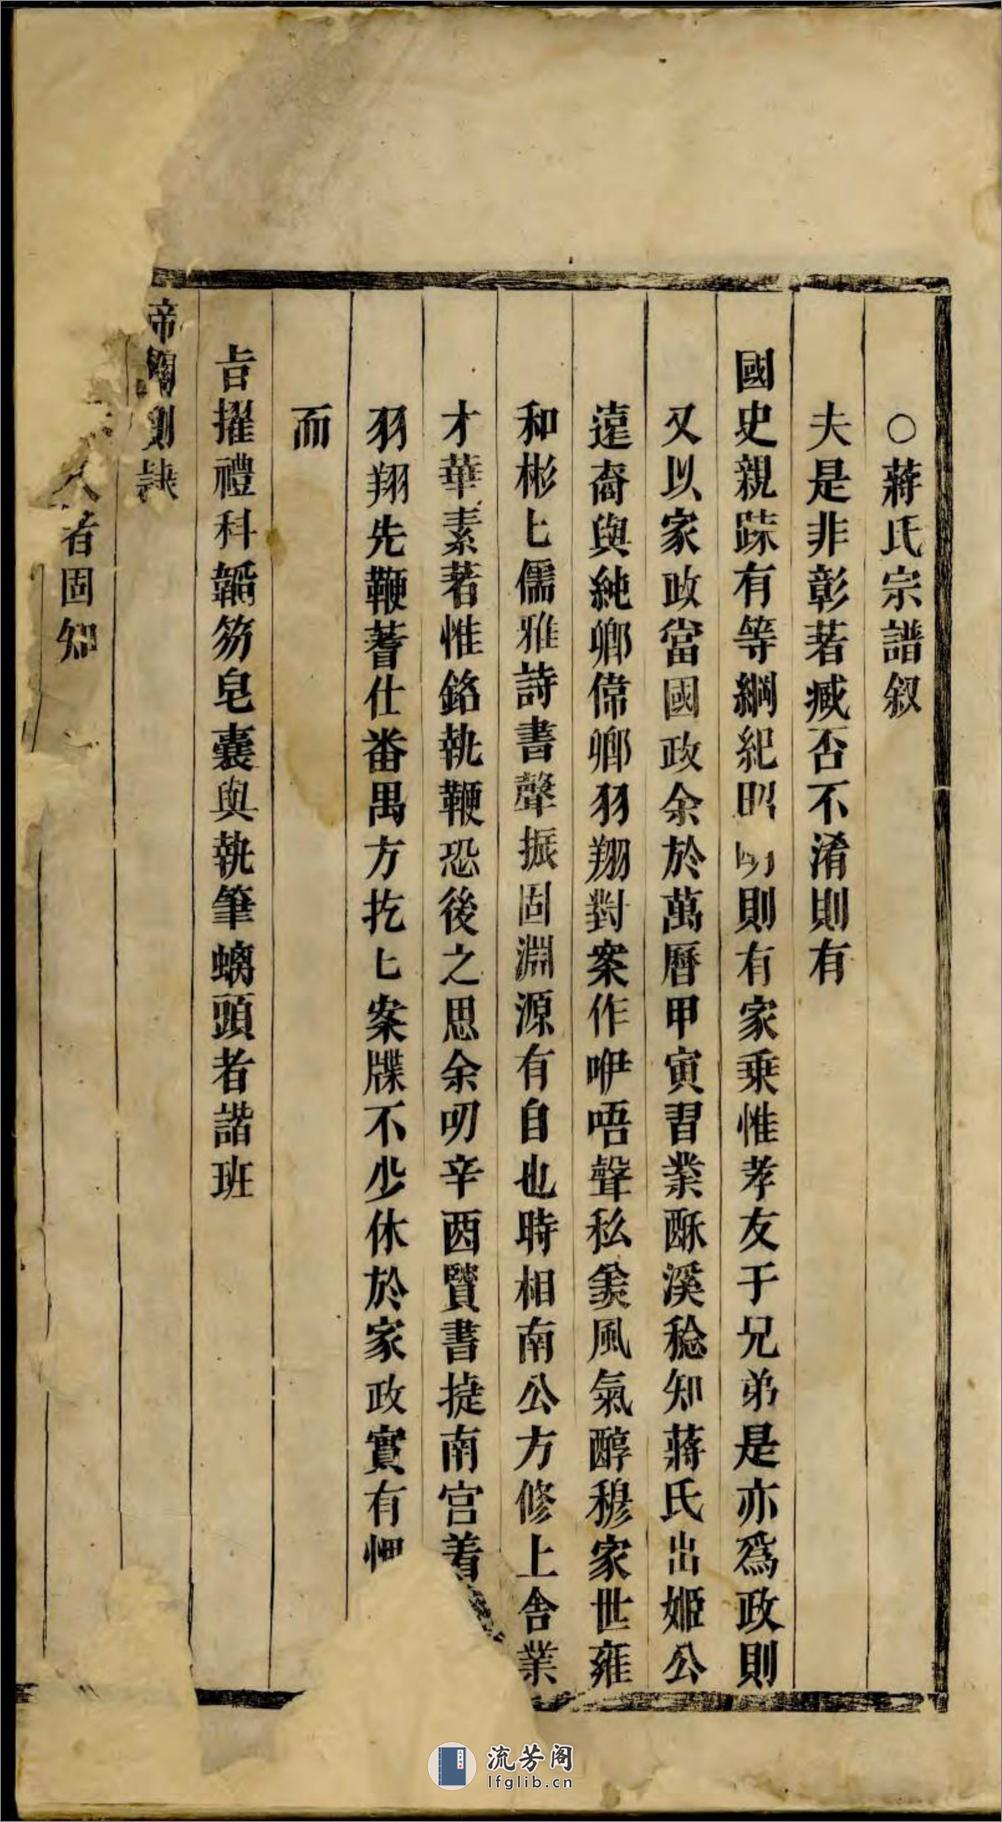 ○蔣氏宗譜叙
夫是非彰著臧否不淆則有
國史親疎有等綱紀昭明則有家乗惟孝友于兄弟是亦爲政則
又以家政當國政余於萬曆甲寅習業酥溪稔知蔣氏出姬公
遠裔與純卿偉卿羽翔對案作咿唔聲私羨風氣醇穆家世雍
和彬匕儒雅詩書聲振固淵源有自也時相南公方修上舍業
才華素著惟銘執鞭恐後之思余叨辛酉賢書㨗南宮着
羽翔先鞭蓍仕番禺方扢匕案牒不少休於家政實有
而
㫖擢禮科韜笏皂囊與執筆螭頭者諧班
帝
者固知
流芳阁
lfglib.cn